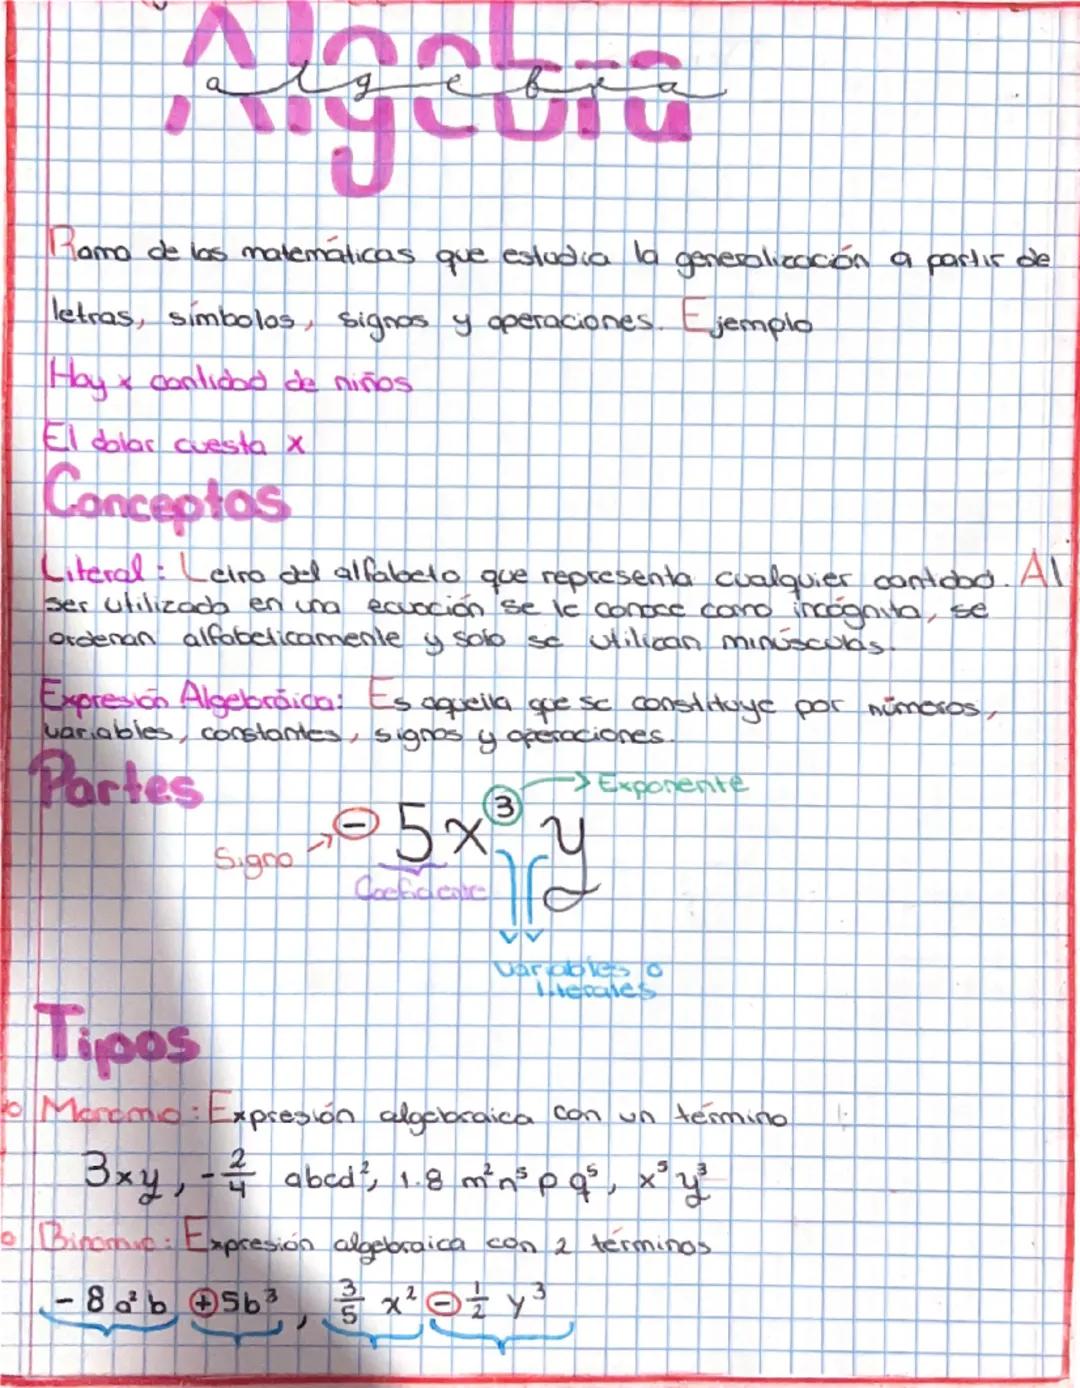 Algebra
algebra
Rama de las matemáticas que estudia la generalización a partir de
letras, símbolos, signos y operaciones. Ejemplo
Hay x cantidad de niños
El dolar cuesta x
Conceptos
Literal: Letra del alfabeto que representa cualquier cantidad. Al
ser utilizada en una ecuación se le conoce como incógnita, se
ordenan alfabeticamente y solo se utilizan minúsculas.
Expresión Algebráica: Es aquella que se constituye por números,
variables, constantes, signos y operaciones.
Partes
Exponente
- 5x³ y
Signo
Coeficiente
Variables o
literales
Tipos
Monomio: Expresión algebraica con un término
3xy, -2/4 abcd², 1.8 m²n⁵pq⁵, x⁵y³
Binomio: Expresión algebraica con 2 términos
-8a²b + 5b³, 3/5 x² - 1/2 y³